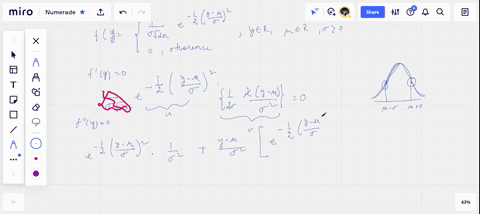 miro Numerade
Share
f(y = { 1/(σ√2π) e^{-1/2((y-μ)/σ)^2} , y∈R, μ∈R, σ>0
0, otherwise
f'(y)=0
e^{-1/2((y-μ)/σ)^2} · {1/2 · 2(y-μ)/σ^2} = 0
u
v
μ-σ μ+σ
f''(y)=0
e^{-1/2((y-μ)/σ)^2} · 1/σ^2 + (y-μ)/σ^2 [ e^{-1/2((y-μ)/σ
43%